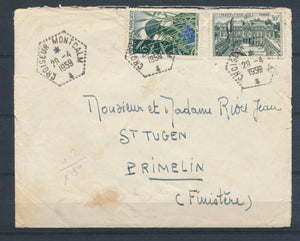 CROISEUR MONTCALM
29-4
1959
CROISEUR
29-4
1959
CROISEUR
29-4
1959
Monsieur et Madame Riou Jean
ST TUGEN
PRIMELIN
(Finistère)